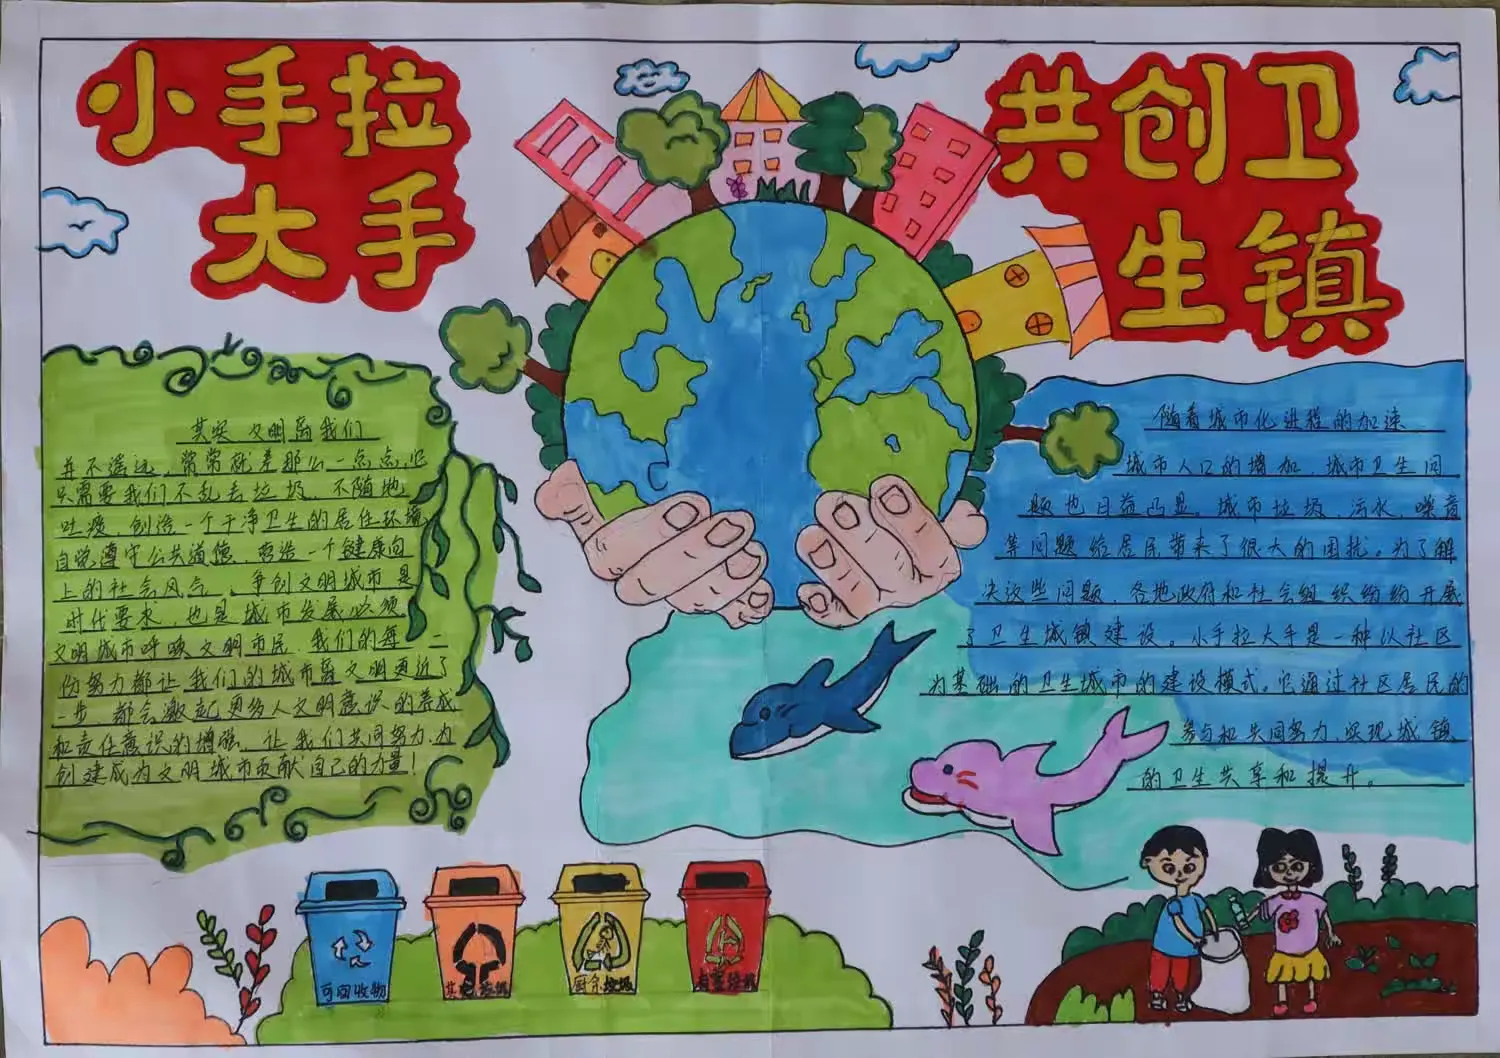 小手拉
大手
共创卫
生镇
其实 文明离我们
并不遥远，常常就差那么一点点，它
只需要我们不乱丢垃圾，不随地
吐痰，创造一个干净卫生的居住环境
自觉遵守公共道德，营造一个健康向
上的社会风气。争创文明城市是
时代要求，也是城市发展必须
文明城市呼唤文明市民，我们的每一
份努力都让我们的城市离文明更近了
一步，都会激起更多人文明意识的养成
和责任意识的增强，让我们共同努力，为
创建成为文明城市贡献自己的力量！
随着城市化进程的加速
城市人口的增加，城市卫生问
题也日益凸显。城市垃圾，污水，噪音
等问题给居民带来了很大的困扰。为了解
决这些问题，各地政府和社会组织纷纷开展
了卫生城镇建设。小手拉大手是一种以社区
为基础的卫生城市的建设模式。它通过社区居民的
参与和共同努力，实现城镇
的卫生共享和提升。
可回收物
其它垃圾
厨余垃圾
有害垃圾